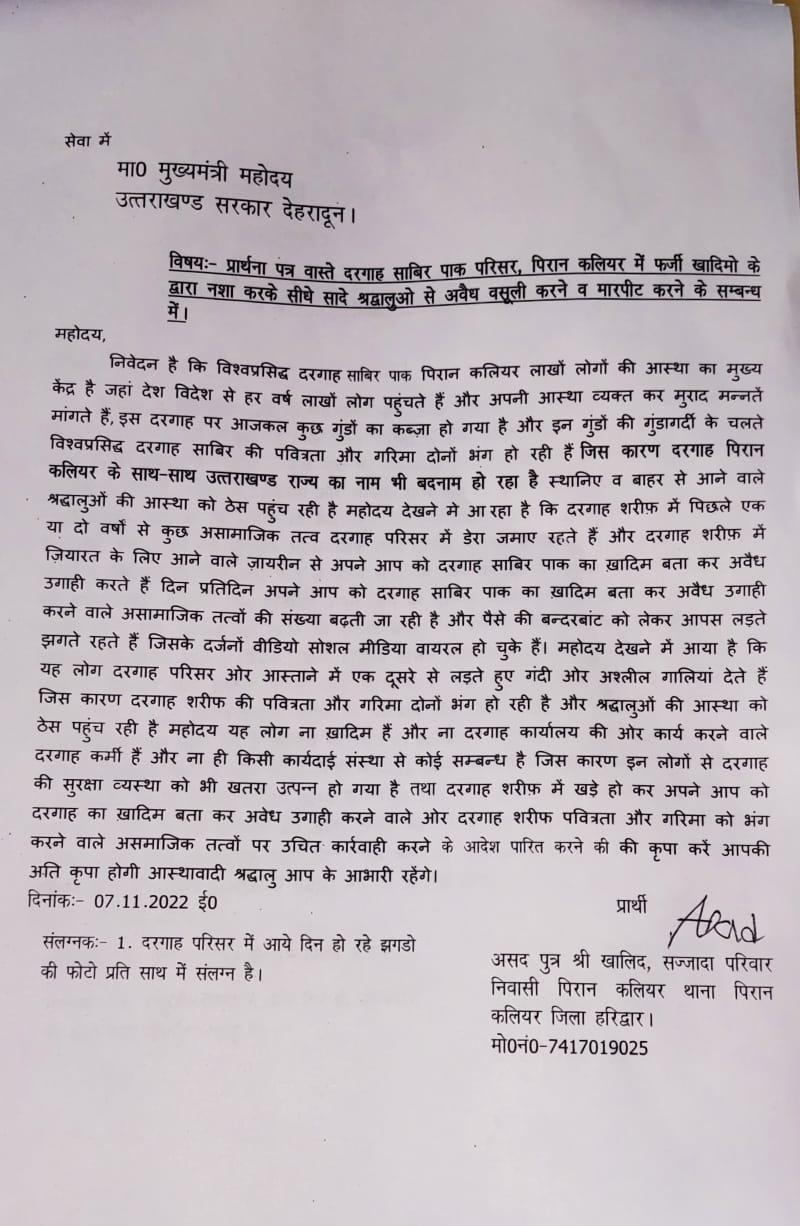 सेवा में
मा0 मुख्यमंत्री महोदय
उत्तराखण्ड सरकार देहरादून।
विषयः- प्रार्थना पत्र वास्ते दरगाह साबिर पाक परिसर, पिरान कलियर में फर्जी खादिमो के
द्वारा नशा करके सीधे सादे श्रद्वालुओ से अवैध वसूली करने व मारपीट करने के सम्बन्ध
में।
महोदय,
निवेदन है कि विश्वप्रसिद्ध दरगाह साबिर पाक पिरान कलियर लाखों लोगों की आस्था का मुख्य
केंद्र है जहां देश विदेश से हर वर्ष लाखों लोग पहुंचते हैं और अपनी आस्था व्यक्त कर मुराद मन्नतें
मांगते हैं, इस दरगाह पर आजकल कुछ गुंडों का कब्ज़ा हो गया है और इन गुंडों की गुंडागर्दी के चलते
विश्वप्रसिद्ध दरगाह साबिर की पवित्रता और गरिमा दोनों भंग हो रही हैं जिस कारण दरगाह पिरान
कलियर के साथ-साथ उत्तराखण्ड राज्य का नाम भी बदनाम हो रहा है स्थानिए व बाहर से आने वाले
श्रद्धालुओं की आस्था को ठेस पहुंच रही है महोदय देखने मे आ रहा है कि दरगाह शरीफ़ में पिछले एक
या दो वर्षो से कुछ असामाजिक तत्व दरगाह परिसर में डेरा जमाए रहते हैं और दरगाह शरीफ़ में
ज़ियारत के लिए आने वाले ज़ायरीन से अपने आप को दरगाह साबिर पाक का ख़ादिम बता कर अवैध
उगाही करते हैं दिन प्रतिदिन अपने आप को दरगाह साबिर पाक का ख़ादिम बता कर अवैध उगाही
करने वाले असामाजिक तत्वों की संख्या बढ़ती जा रही है और पैसे की बन्दरबांट को लेकर आपस लड़ते
झगते रहते हैं जिसके दर्जनों वीडियो सोशल मीडिया वायरल हो चुके हैं। महोदय देखने में आया है कि
यह लोग दरगाह परिसर ओर आस्ताने में एक दूसरे से लड़ते हुए गंदी ओर अश्लील गालियां देते हैं
जिस कारण दरगाह शरीफ की पवित्रता और गरिमा दोनों भंग हो रही है और श्रद्धालुओं की आस्था को
ठेस पहुंच रही है महोदय यह लोग ना ख़ादिम हैं और ना दरगाह कार्यालय की ओर कार्य करने वाले
दरगाह कर्मी हैं और ना ही किसी कार्यदाई संस्था से कोई सम्बन्ध है जिस कारण इन लोगों से दरगाह
की सुरक्षा व्यस्था को भी खतरा उत्पन्न हो गया है तथा दरगाह शरीफ़ में खड़े हो कर अपने आप को
दरगाह का ख़ादिम बता कर अवेध उगाही करने वाले ओर दरगाह शरीफ पवित्रता और गरिमा को भंग
करने वाले असमाजिक तत्वों पर उचित कार्रवाही करने के आदेश पारित करने की की कृपा करें आपकी
अति कृपा होगी आस्थावादी श्रद्धालु आप के आभारी रहेंगे।
दिनांकः- 07.11.2022 ई0
प्रार्थी Asad
संलग्नकः- 1. दरगाह परिसर में आये दिन हो रहे झगडो
की फोटो प्रति साथ में संलग्न है।
असद पुत्र श्री खालिद, सज्जादा परिवार
निवासी पिरान कलियर थाना पिरान
कलियर जिला हरिद्वार।
मो0नं0-7417019025